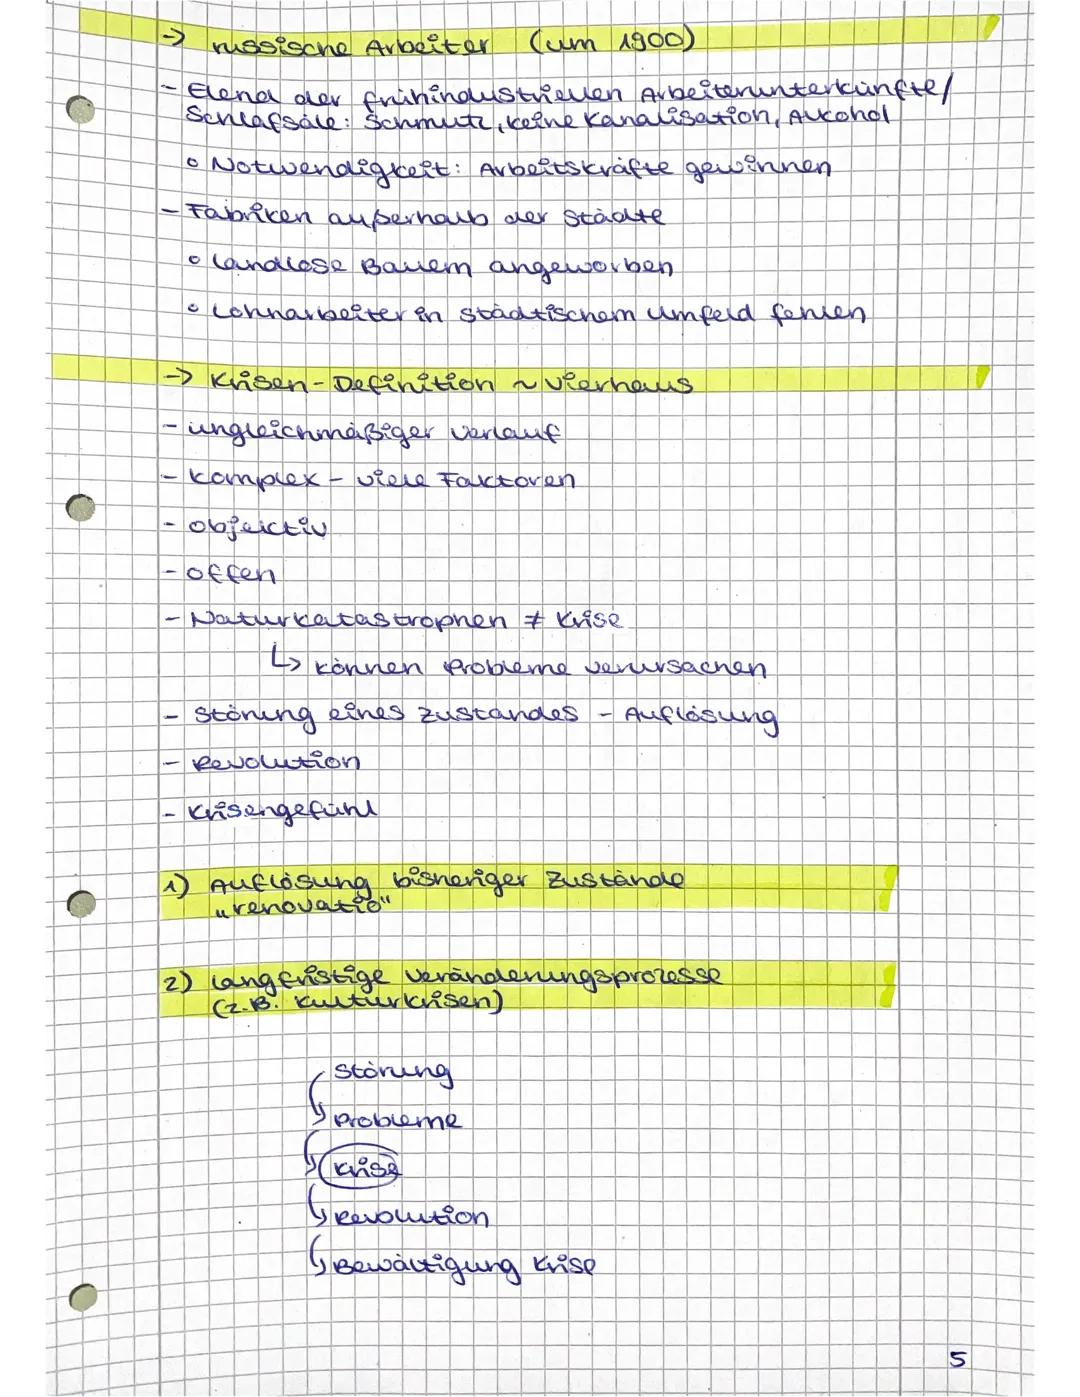 → russische Arbeiter (um 1900)
- Elend der frühindustriellen Arbeiterunterkünfte/
Schlafsäle: Schmutz, keine Kanalisation, Alkohol
∘ Notwendigkeit: Arbeitskräfte gewinnen
- Fabriken außerhalb der Städte
∘ landlose Bauern angeworben
∘ Lohnarbeiter in städtischem Umfeld fehlen
→ Krisen-Definition ~ Vierhaus
- ungleichmäßiger Verlauf
- komplex - viele Faktoren
- objektiv
- offen
- Naturkatastrophen ≠ Krise
↳ können Probleme verursachen
- Störung eines Zustandes - Auflösung
- Revolution
- Krisengefühl
1) Auflösung bisheriger Zustände
„renovatio“
2) langfristige Veränderungsprozesse
(z.B. Kulturkrisen)
Störung
↳ Probleme
↳ Krise
↳ Revolution
↳ Bewältigung Krise
5